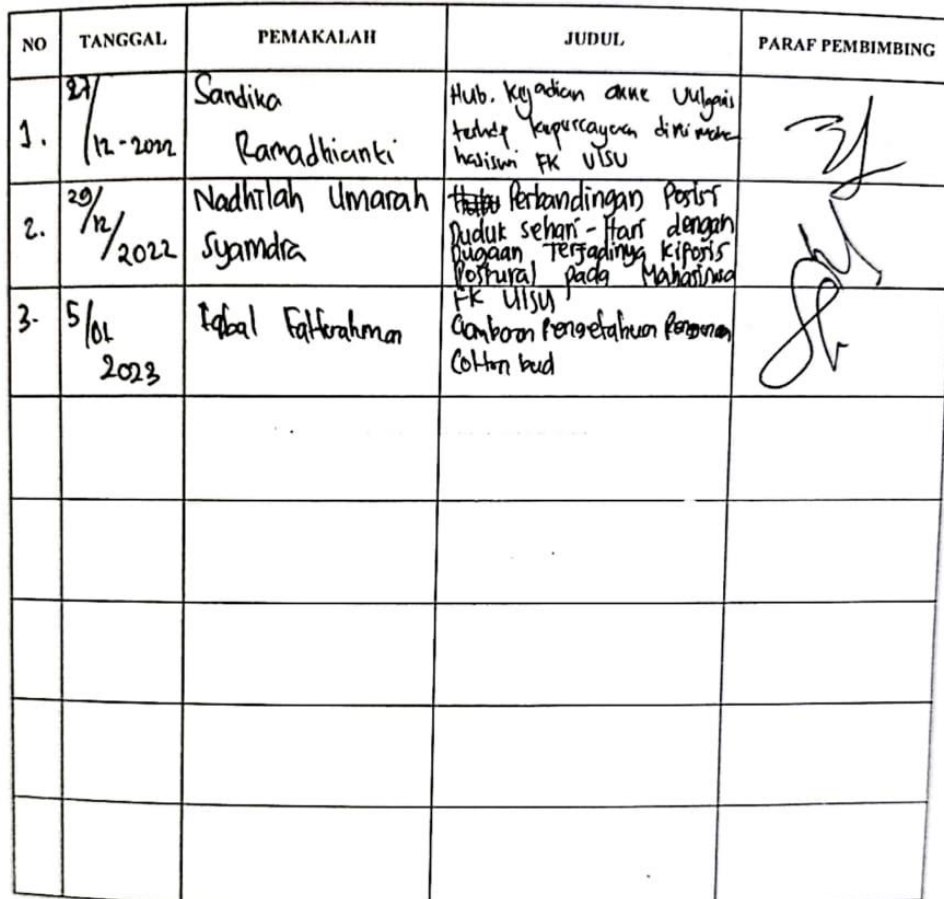 NO TANGGAL PEMAKALAH JUDUL PARAF PEMBIMBING
1.
27/
12-2022
Sandika
Ramadhianti
Hub. Kejadian akne vulgaris
terhdp kepercayaan diri maha
hasiswi FK UISU
2.
29/
12/
2022
Nadhilah Umarah
Syamdra
Perbandingan Posisi
Duduk sehari-Hari dengan
Dugaan Terjadinya Kifosis
Postural pada Mahasiswa
FK UISU
3.
5/
01
2023
Iqbal Fatturahman
Gambaran Pengetahuan
Cotton bud